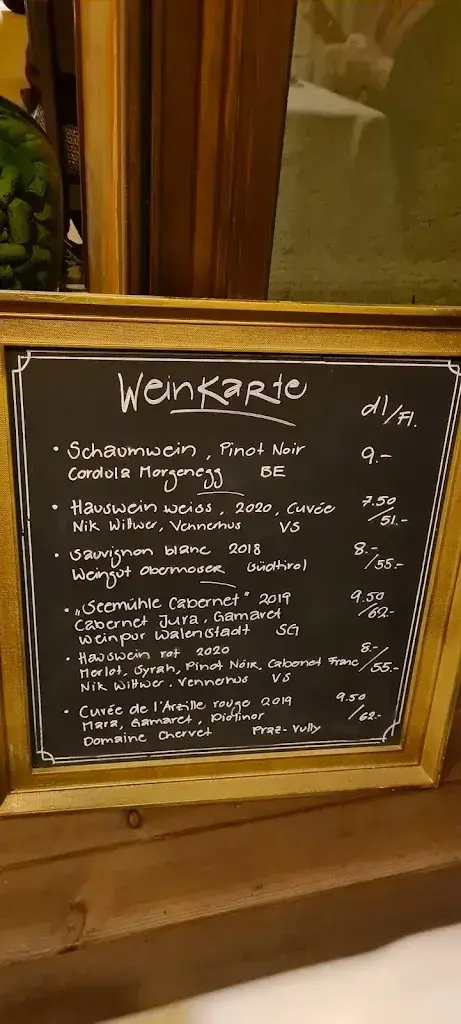 Weinkarte dl/Fl.
• Schaumwein, Pinot Noir 9.-
Cordula Morgenegg BE
• Hauswein weiss, 2020, Cuvée 7.50
Nik Wittwer, Vennerhus VS /51.-
• Sauvignon blanc 2018 8.-
Weingut Obermoser (Südtirol) /55.-
• „Seemühle Cabernet" 2019 9.50
Cabernet Jura, Gamaret /62.-
Weinpur Walenstadt SG
• Hauswein rot 2020 8.-
Merlot, Syrah, Pinot Noir, Cabernet Franc /55.-
Nik Wittwer, Vennerhus VS
• Cuvée de l'Arzille rouge 2019 9.50
Mara, Gamaret, Diolinor /62.-
Domaine Chervet Praz-Vully